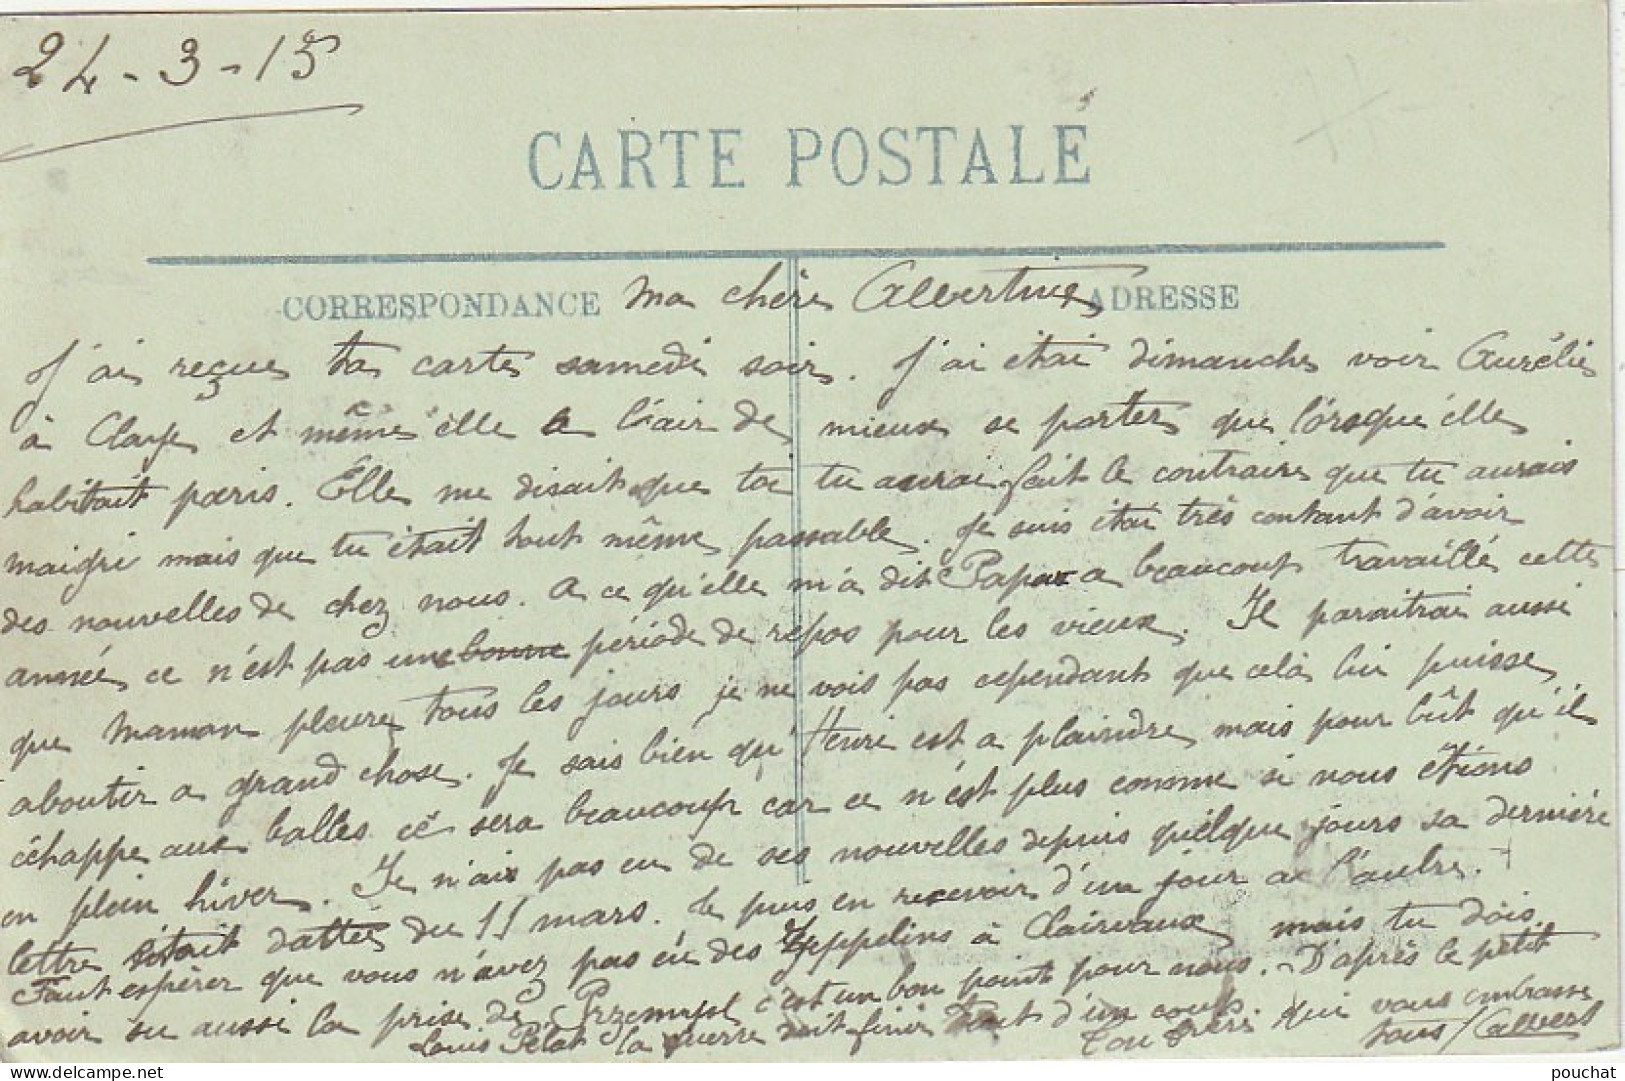 24-3-15
CARTE POSTALE
CORRESPONDANCE Ma chère Albertine ADRESSE
J'ai reçue ta carte samedi soir. J'ai étai dimanche voir Aurélie
à Claye et même elle a l'air de mieux se porter que lorsqu'elle
habitait paris. Elle me disait que toi tu aurai fait le contraire que tu aurais
maigri mais que tu était tout même passable. Je suis étai très contant d'avoir
des nouvelles de chez nous. A ce qu'elle m'a dit Papa a beaucoup travaillé cette
année, ce n'est pas une bonne période de repos pour les vieux. Il paraitrai aussi
que Maman pleure tous les jours je ne vois pas cependant que celà lui puisse
aboutir a grand chose. Je sais bien qu'Henri est a plaindre, mais pour bût qu'il
échappe aux balles ce sera beaucoup car ce n'est plus comme si nous étions
en plein hiver. Je n'ais pas eu de ses nouvelles depuis quelque jours sa dernière
lettre était dattée du 11 mars. Je puis en recevoir d'un jour a l'autre.
Faut espérer que vous n'avez pas eu des Zeppelins à Clairvaux mais tu dois
avoir su aussi la prise de Przemysl c'est un bon point pour nous. D'après le petit
Louis Pelat la guerre doit finir tout d'un coup. Ton frère qui vous embrasse
tous Albert
pouchat